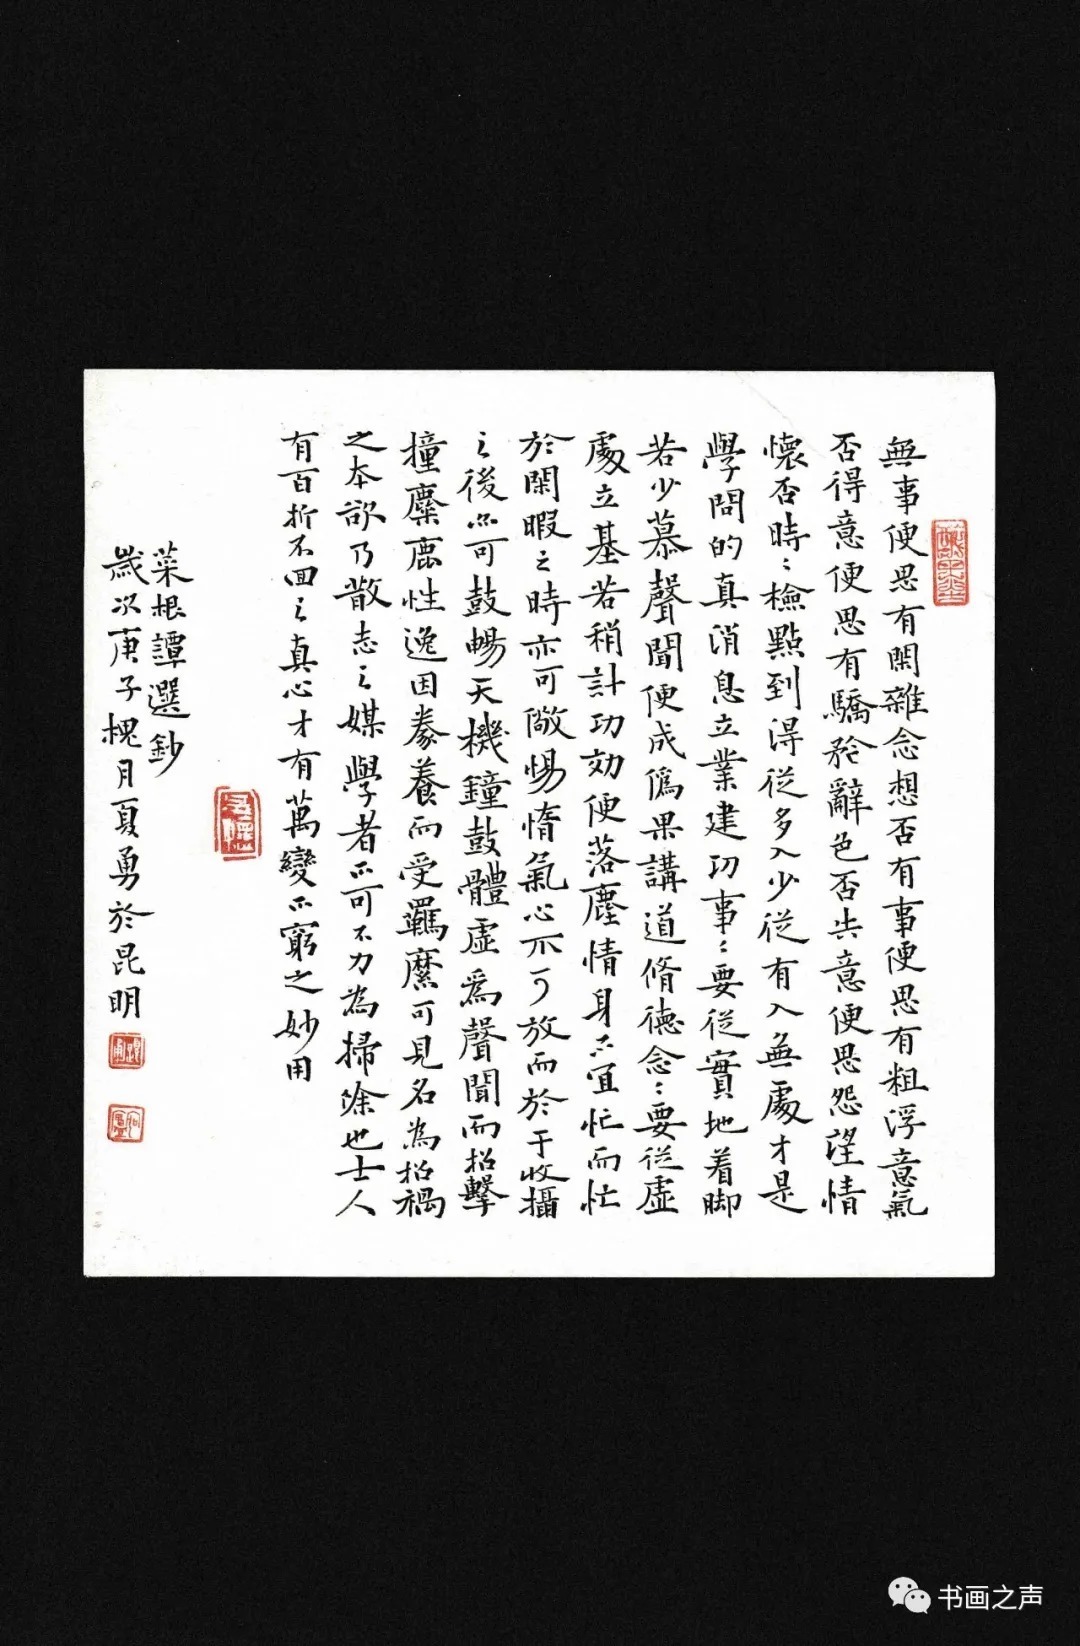 無事便思有閑雜念想否有事便思有粗浮意氣
否得意便思有驕矜辭色否失意便思怨望情
懷否時：檢點到得從多入少從有入無處才是
學問的真消息立業建功事：要從實地着脚
若少慕聲聞便成僞果講道脩德念：要從虛
處立基若稍計功効便落塵情身不宜忙而忙
於閑暇之時亦可儆惕惰氣心不可放而於于收攝
之後亦可鼓暢天機鐘鼓體虛為聲聞而招擊
撞麋鹿性逸因豢養而受羈縻可見名為招禍
之本欲乃散志之媒學者不可不力為掃除也士人
有百折不回之真心才有萬變不窮之妙用
菜根譚選鈔
歲次庚子槐月夏勇於昆明
书画之声